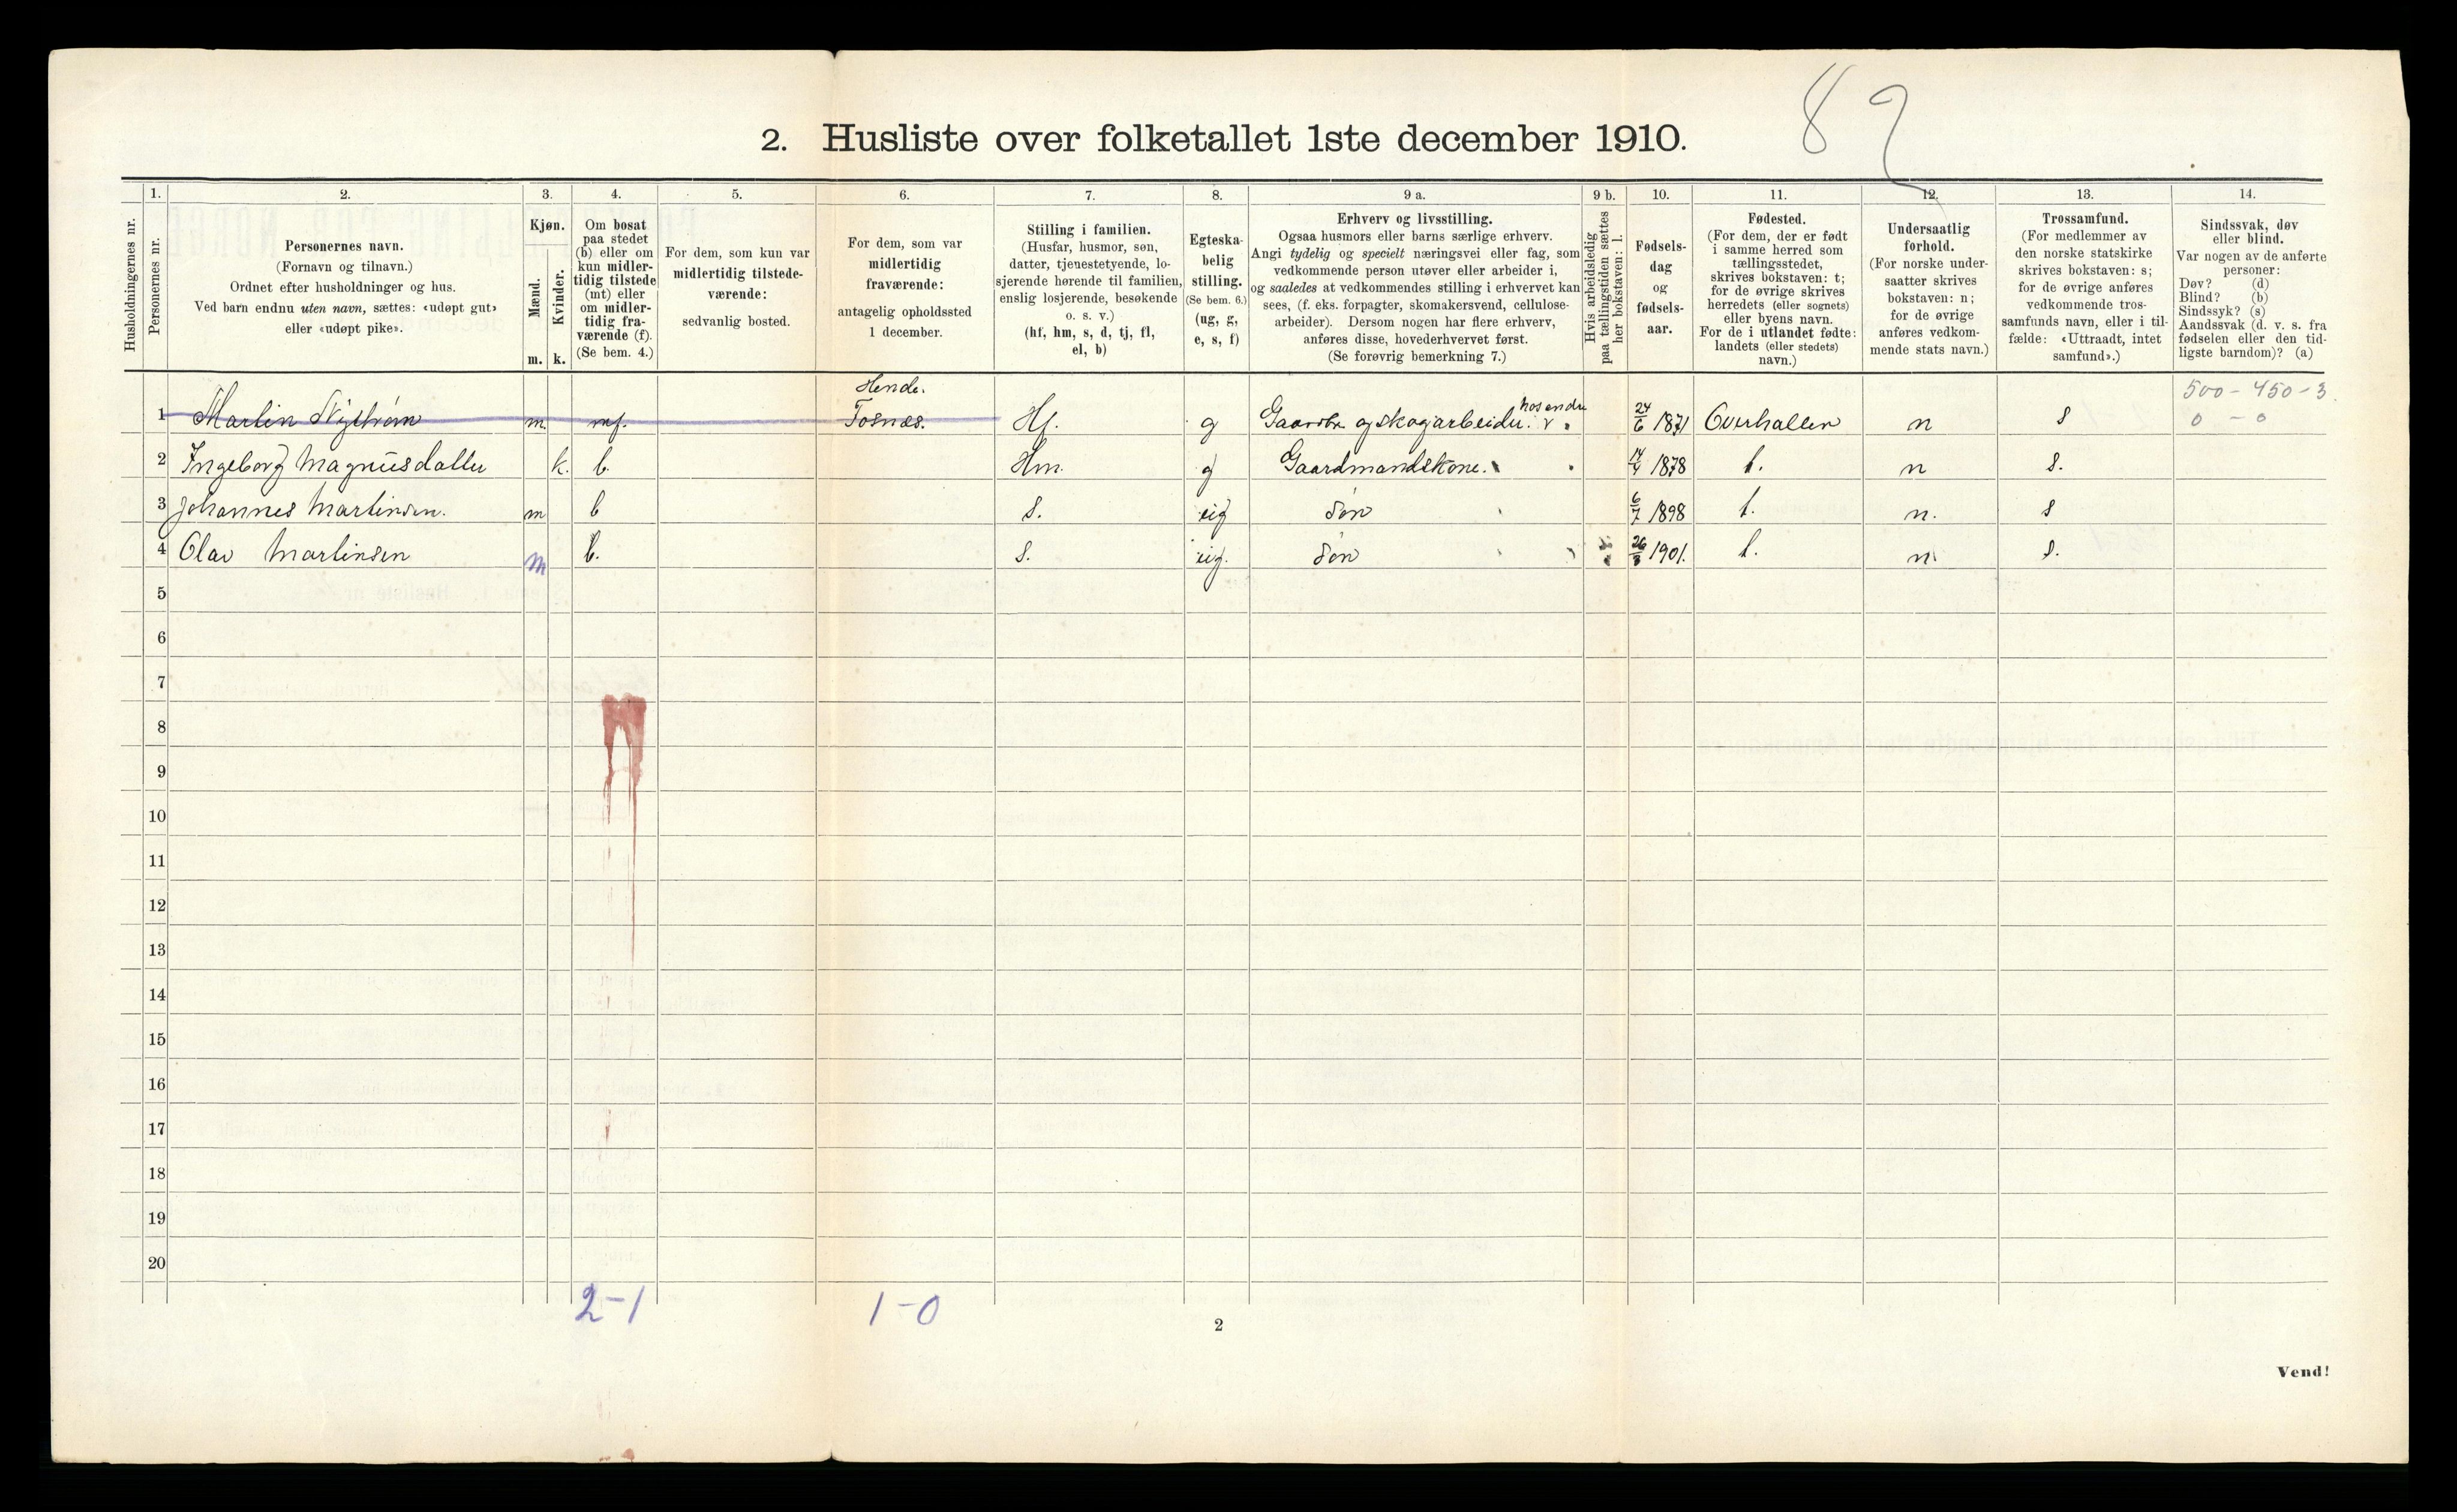 89
2. Husliste over folketallet 1ste december 1910.
Husholdningernes nr.
1.
Personernes nr.
2.
Personernes navn.
(Fornavn og tilnavn.)
Ordnet efter husholdninger og hus.
Ved barn endnu uten navn, sættes: «udøpt gut»
eller «udøpt pike».
3.
Kjøn.
Mænd.
Kvinder.
m. k.
4.
Om bosat
paa stedet
(b) eller om
kun midler-
tidig tilstede
(mt) eller
om midler-
tidig fra-
værende (f).
(Se bem. 4.)
5.
For dem, som kun var
midlertidig tilstede-
værende:
sedvanlig bosted.
6.
For dem, som var
midlertidig
fraværende:
antagelig opholdssted
1 december.
7.
Stilling i familien.
(Husfar, husmor, søn,
datter, tjenestetyende, lo-
sjerende hørende til familien,
enslig losjerende, besøkende
o. s. v.)
(hf, hm, s, d, tj, fl,
el, b)
8.
Egteska-
belig
stilling.
(Se bem. 6.)
(ug, g,
e, s, f)
9 a.
Erhverv og livsstilling.
Ogsaa husmors eller barns særlige erhverv.
Angi tydelig og specielt næringsvei eller fag, som
vedkommende person utøver eller arbeider i,
og saaledes at vedkommendes stilling i erhvervet kan
sees, (f. eks. forpagter, skomakersvend, cellulose-
arbeider). Dersom nogen har flere erhverv,
anføres disse, hovederhvervet først.
(Se forøvrig bemerkning 7.)
9 b.
Hvis arbeidsledig
paa tællingstiden sættes
her bokstaven: l.
10.
Fødsels-
dag
og
fødsels-
aar.
11.
Fødested.
(For dem, der er født
i samme herred som
tællingsstedet,
skrives bokstaven: t;
for de øvrige skrives
herredets (eller sognets)
eller byens navn.
For de i utlandet fødte:
landets (eller stedets)
navn.)
12.
Undersaatlig
forhold.
(For norske under-
saatter skrives
bokstaven: n;
for de øvrige
anføres vedkom-
mende stats navn.)
13.
Trossamfund.
(For medlemmer av
den norske statskirke
skrives bokstaven: s;
for de øvrige anføres
vedkommende tros-
samfunds navn, eller i til-
fælde: «Uttraadt, intet
samfund».)
14.
Sindssvak, døv
eller blind.
Var nogen av de anførte
personer:
Døv? (d)
Blind? (b)
Sindssyk? (s)
Aandssvak (d. v. s. fra
fødselen eller den tid-
ligste barndom)? (a)
Hende. 500 - 450 - 3
1 Martin Nyström m. mf. Fosnes. Hf. g Gaardbr. og skogarbeider. hos andre 24/6 1871 Overhallen n s 0 - 0
2 Ingeborg Magnusdatter k. b. Hm. g Gaardmandskone. 1878 t. n s.
3 Johannes Martinsen. m b s. eig søn 6/7 1898 t. n. s
4 Olav Martinsen m b. s. eig. søn 1901. t. n s.
5
6
7
8
9
10
11
12
13
14
15
16
17
18
19
20
2-1 1-0
2
Vend!